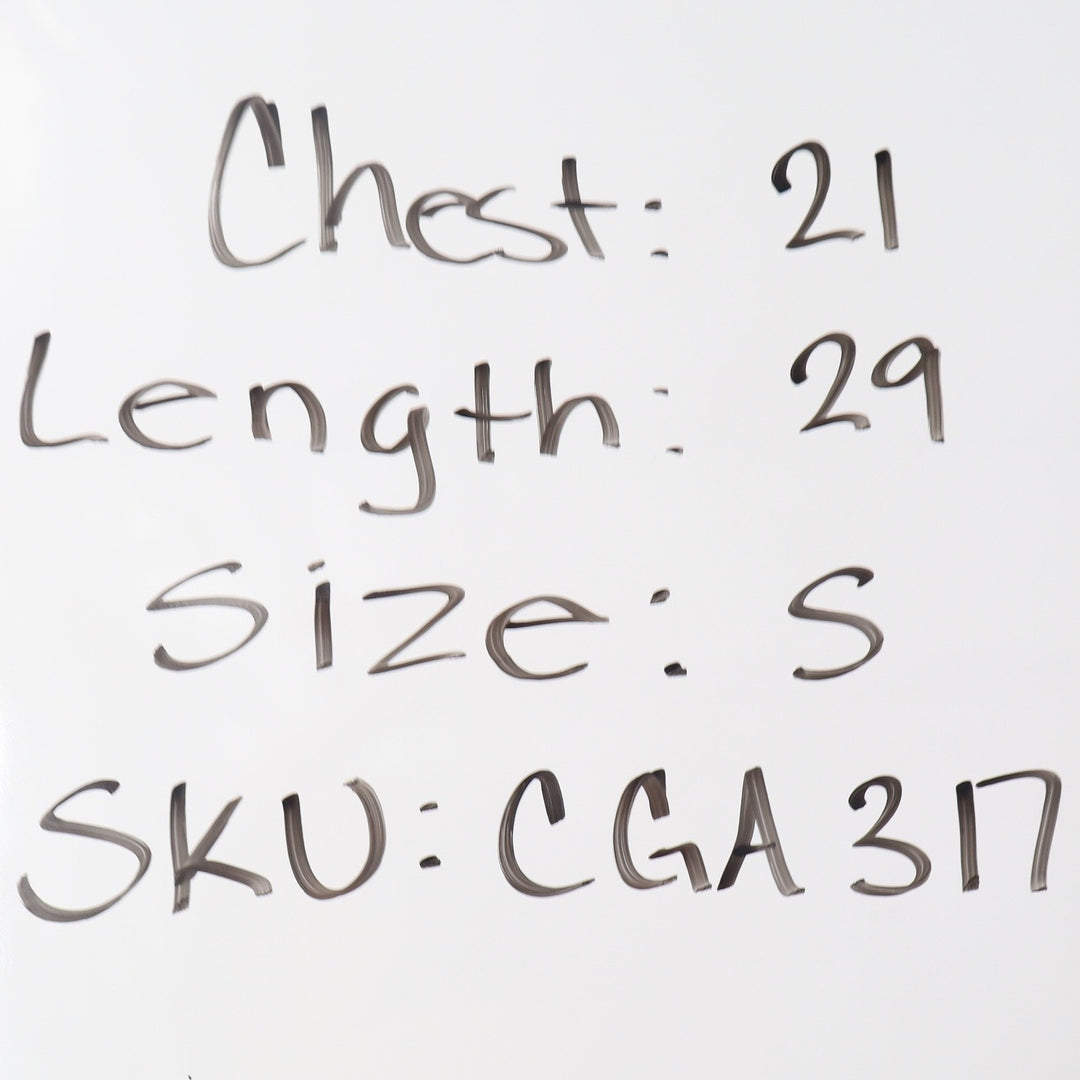 Chest: 21
Length: 29
Size: S
SKU: CGA317